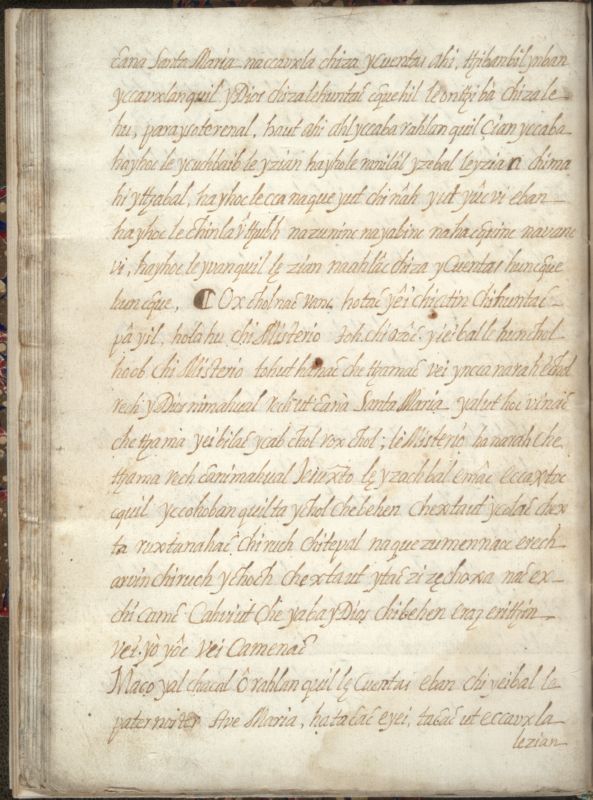 cana Santa Maria naccavxla chiza ycuentas ahi, ttzibanbil ynban
yccavxlanquil yDios chizalehuntac cque hil le onittzi bà chizale
hu, parayso terenal, haut ahi ahlyccaba rahlan quil Cian yccaba
hayhoc le ycuchbaib le yzian hayhole ronilal yzebal leyzian chima
hi yttzabal, hayhoc lecca naque yut chi nâh yut yûc vi eban
hayhoc le chinla vttubh nazuninc nayabinc naha
vi, hayhoc leyvanquil le zian naahlâc chiza ycuentas huncque
huncque. Ox chol nac van, hotac yêi chictin chihuntac
pâ yil, holahu chi Misterio Joh chi yieibal le hun chol
hoob chi Misterio tohut hunac che ttzamac vei yncca narah chol
rech yDios nimahual rech ut cana Santa Maria yalut hoc vinac
che ttzama yeibilac ycab chol rox chol; le Misterio ha narah che
ttzama rech canimahual Jesuxto le yzachbal emac eccaxtoc
cquil yccohoban quil ta ychol chebehen chextaut ycolac chex
ta ruxtanahac chiruch chitepal naque zumennaoc erech
arvin chiruch ychoch chextaut ytac zi zechoxa nac ex
chi camc Cahviut che yaba yDios chibehen eraj erittzin
vei. yò yôc vei camenac
Maco yal chacal ô rahlan quil le cuentas eban chi yeibal le
paternoster Ave Maria, hatacac eyei, tacac ut eccavxla
lezian